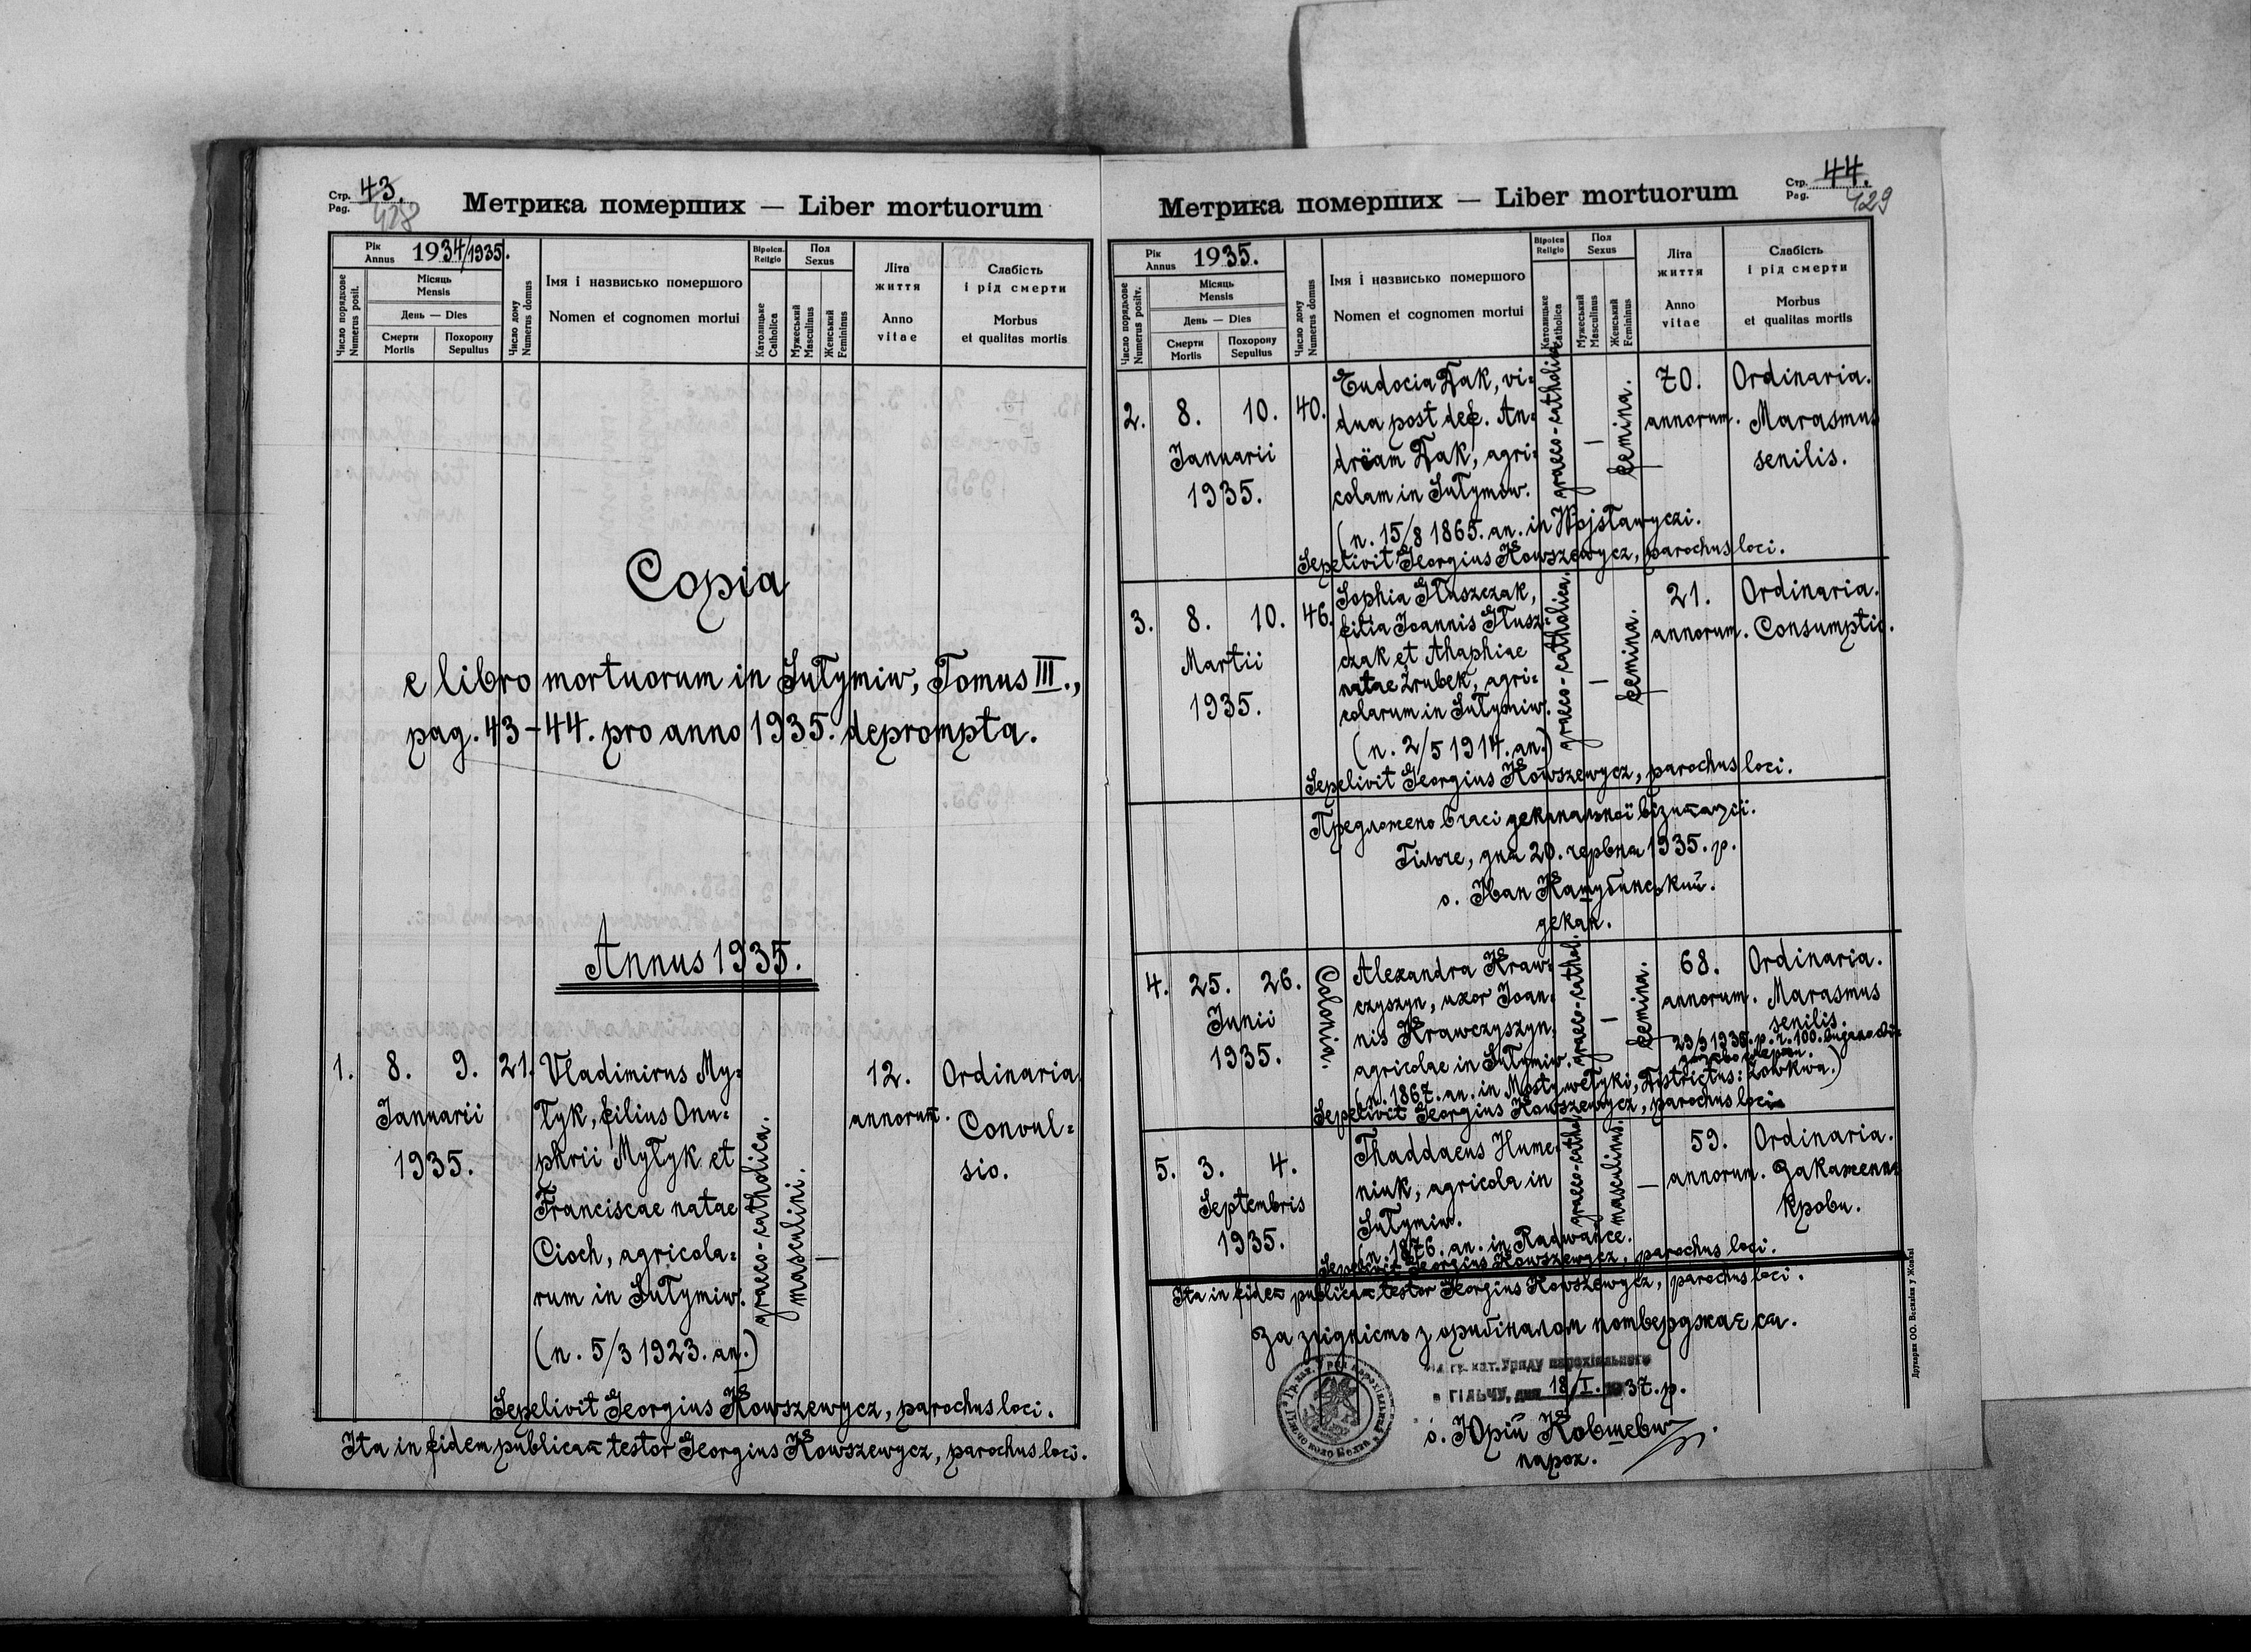 Стр. 43.
Pag. 428
Метрика померших — Liber mortuorum
Рік
Annus 1934/1935.
Місяць
Mensis
День — Dies
Число порядкове
Numerus posit.
Смерти
Mortis
Похорону
Sepultus
Число дому
Numerus domus
Імя і назвисько помершого
Nomen et cognomen mortui
Віроісп.
Religio
Католицьке
Catholica
Пол
Sexus
Мужеський
Masculinus
Женський
Femininus
Літа
життя
Anno
vitae
Слабість
і рід смерти
Morbus
et qualitas mortis
Copia
e libro mortuorum in Sułymiw, Tomus III.,
pag. 43-44. pro anno 1935. deprompta.
Annus 1935.
1. 8. 9. 21. Vladimirus My= 12. Ordinaria
Januarii tyk, filius Onu= annorum. Convul=
1935. phrii Mytyk et sio.
Franciscae natae
Cioch, agricola=
rum in Sułymiw.
(n. 5/3 1923. an.)
graeco-catholica.
masculini. —
Sepelivit Georgius Kowszewycz, parochus loci.
Ita in fidem publicam testor Georgius Kowszewycz, parochus loci.
Стр. 44.
Pag. 429
Метрика померших — Liber mortuorum
Рік
Annus 1935.
Місяць
Mensis
День — Dies
Число порядкове
Numerus positv.
Смерти
Mortis
Похорону
Sepultus
Число дому
Numerus domus
Імя і назвисько помершого
Nomen et cognomen mortui
Віроісп
Religio
Католицьке
Catholica
Пол
Sexus
Мужеський
Masculinus
Женський
Femininus
Літа
життя
Anno
vitae
Слабість
і рід смерти
Morbus
et qualitas mortis
2. 8. 10. 40. Eudocia Dak, vi= 70. Ordinaria.
Januarii dua post def. An= annorum. Marasmus
1935. dream Dak, agri= senilis.
colam in Sułymow.
graeco-catholica
— femina.
(n. 15/8 1865. an. in Wojsławyczi.
Sepelivit Georgius Kowszewycz, parochus loci.
3. 8. 10. 46. Sophia Hłuszczak, 21. Ordinaria.
Martii filia Joannis Hłusz= annorum. Consumptio.
1935. czak et Ahaphiae
natae Zrubek, agri=
colarum in Sułymiw.
(n. 2/5 1914. an.)
graeco-catholica.
— femina.
Sepelivit Georgius Kowszewycz, parochus loci.
Предложено в часі деканальної візитації.
Гільче, дня 20. червня 1935. р.
о. Іван
декан.
4. 25. 26. Colonia. Alexandra Kraw= 68. Ordinaria.
Junii czyszyn, uxor Joan= annorum. Marasmus
1935. nis Krawczyszyn, senilis.
agricolae in Sułymiw.
graeco-cathol.
— femina.
(n. 1867. an. in Mosty wełyki, Districtus: Żowkwa.)
Sepelivit Georgius Kowszewycz, parochus loci
5. 3. 4. Thaddaeus Hume= 59. Ordinaria.
Septembris niuk, agricola in annorum. Закаження
1935. Sułymiw. крови.
graeco-cathol
masculinus. —
(n. 1876. an. in Radwańce.
Sepelivit Georgius Kowszewycz, parochus loci.
Ita in fidem publicam testor Georgius Kowszewycz, parochus loci.
За згідність з оригіналом потверджаєся.
гр. кат. Уряду парохіяльного
в ГІЛЬЧУ, дня 18/I. 1937. р.
о. Юрій Ковшевич
парох.
Друкарня ОО. Василіян у Жовкві